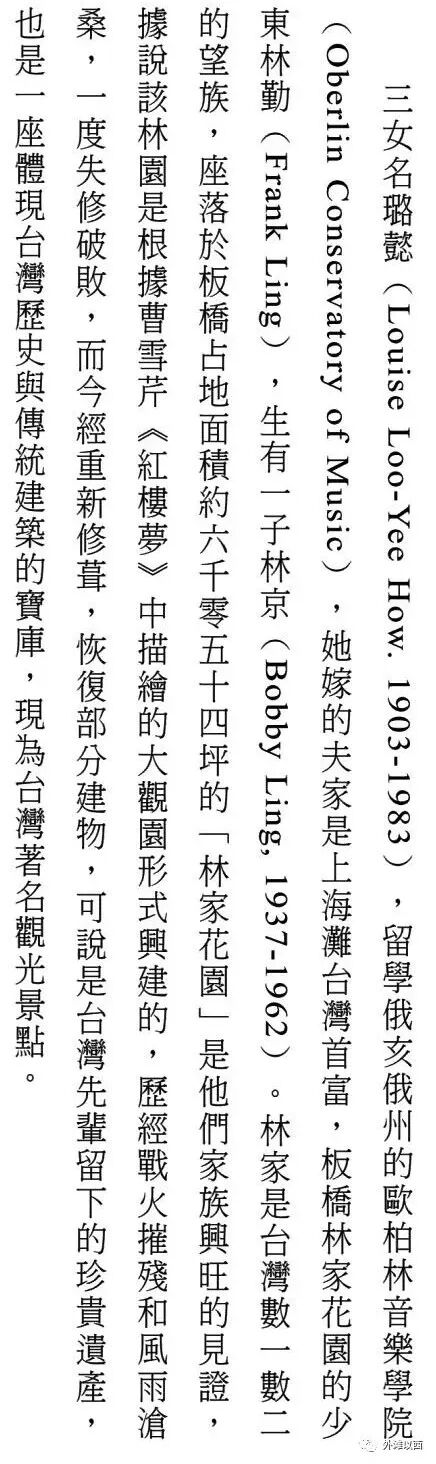 三女名璐懿（Louise Loo-Yee How. 1903-1983），留學俄亥俄州的歐柏林音樂學院
（Oberlin Conservatory of Music），她嫁的夫家是上海灘台灣首富，板橋林家花園的少
東林勤（Frank Ling），生有一子林京（Bobby Ling, 1937-1962）。林家是台灣數一數二
的望族，座落於板橋占地面積約六千零五十四坪的「林家花園」是他們家族興旺的見證，
據說該林園是根據曹雪芹《紅樓夢》中描繪的大觀園形式興建的，歷經戰火摧殘和風雨滄
桑，一度失修破敗，而今經重新修葺，恢復部分建物，可說是台灣先輩留下的珍貴遺產，
也是一座體現台灣歷史與傳統建築的寶庫，現為台灣著名觀光景點。
外滩以西